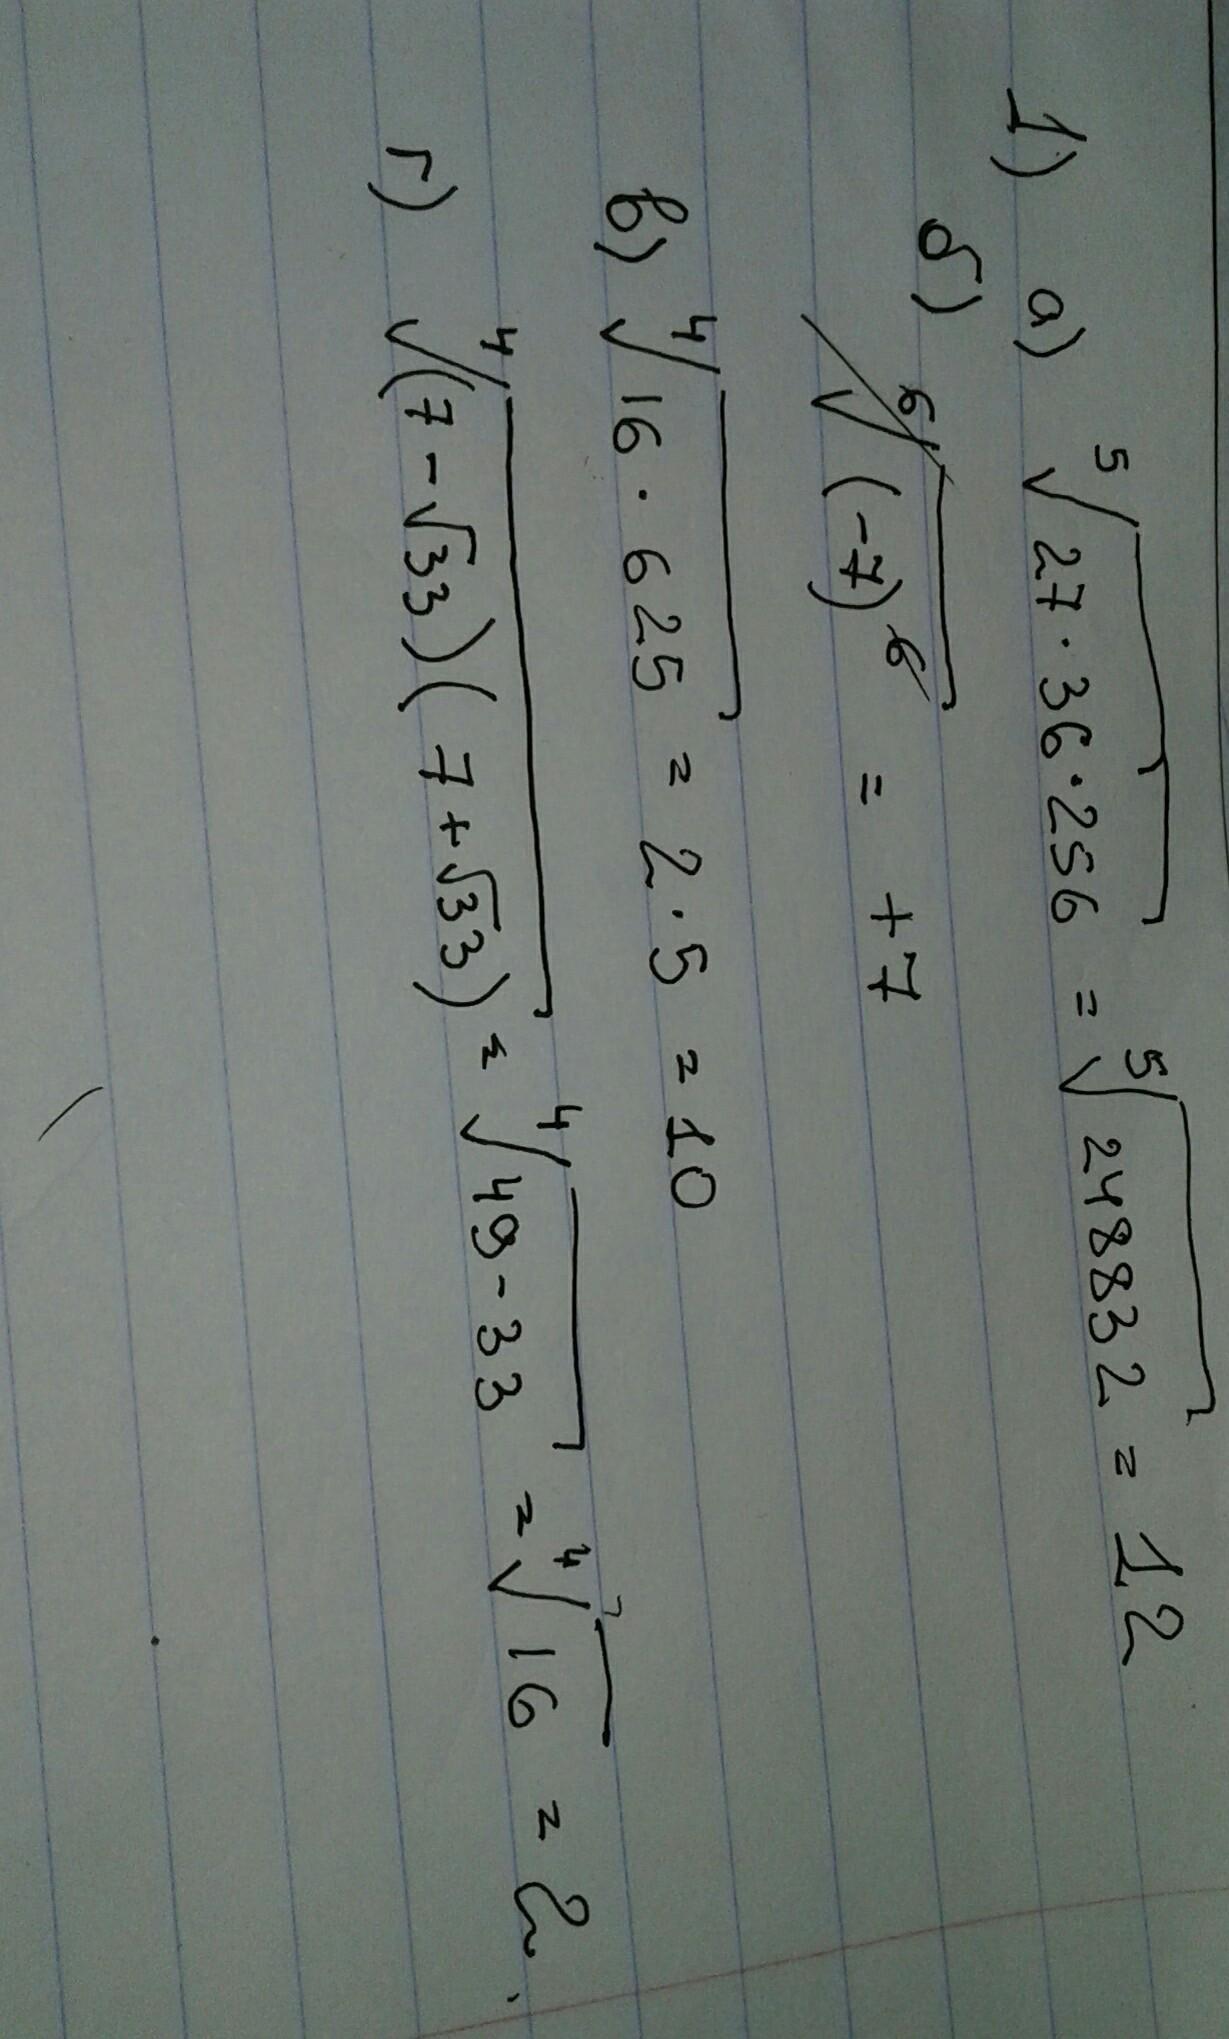 1) а) ⁵√27·36·256 = ⁵√248832 = 12
б) ⁶√(-7)⁶ = +7
в) ⁴√16·625 = 2·5 = 10
г) ⁴√(7-√33)(7+√33) = ⁴√49-33 = ⁴√16 = 2.